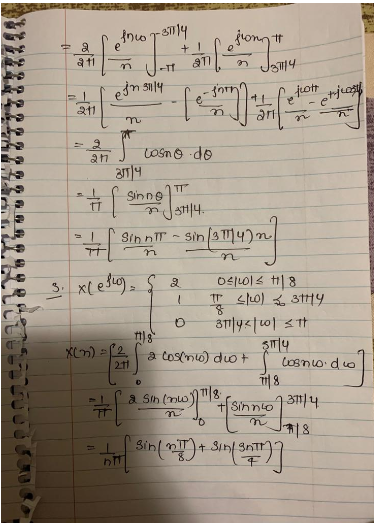 = 2/2π [e^{jnω}/n]_{-π}^{-3π/4} + 1/2π [e^{jωn}/n]_{3π/4}^{π}
= 1/2π [e^{jn 3π/4}/n - [e^{-jnπ}/n]] + 1/2π [e^{jωπ}/n - /n]
= 2/2π ∫_{3π/4}^{π} cosnθ · dθ
= 1/π [sinnθ/n]_{3π/4}^{π}
= 1/π [sin nπ/n - sin(3π/4)n/n]
3. X(e^{jω}) = { 2 0≤|ω|≤ π/8
1 π/8 ≤|ω|≤ 3π/4
0 3π/4<|ω| ≤ π
x(n) = [2/2π ∫_{0}^{π/8} 2 cos(nω) dω + ∫_{π/8}^{3π/4} cosnω · dω]
= 1/π [2 sin(nω)/n]_{0}^{π/8} + [sinnω/n]_{π/8}^{3π/4}
= 1/nπ [sin(nπ/8) + sin(3nπ/4)]